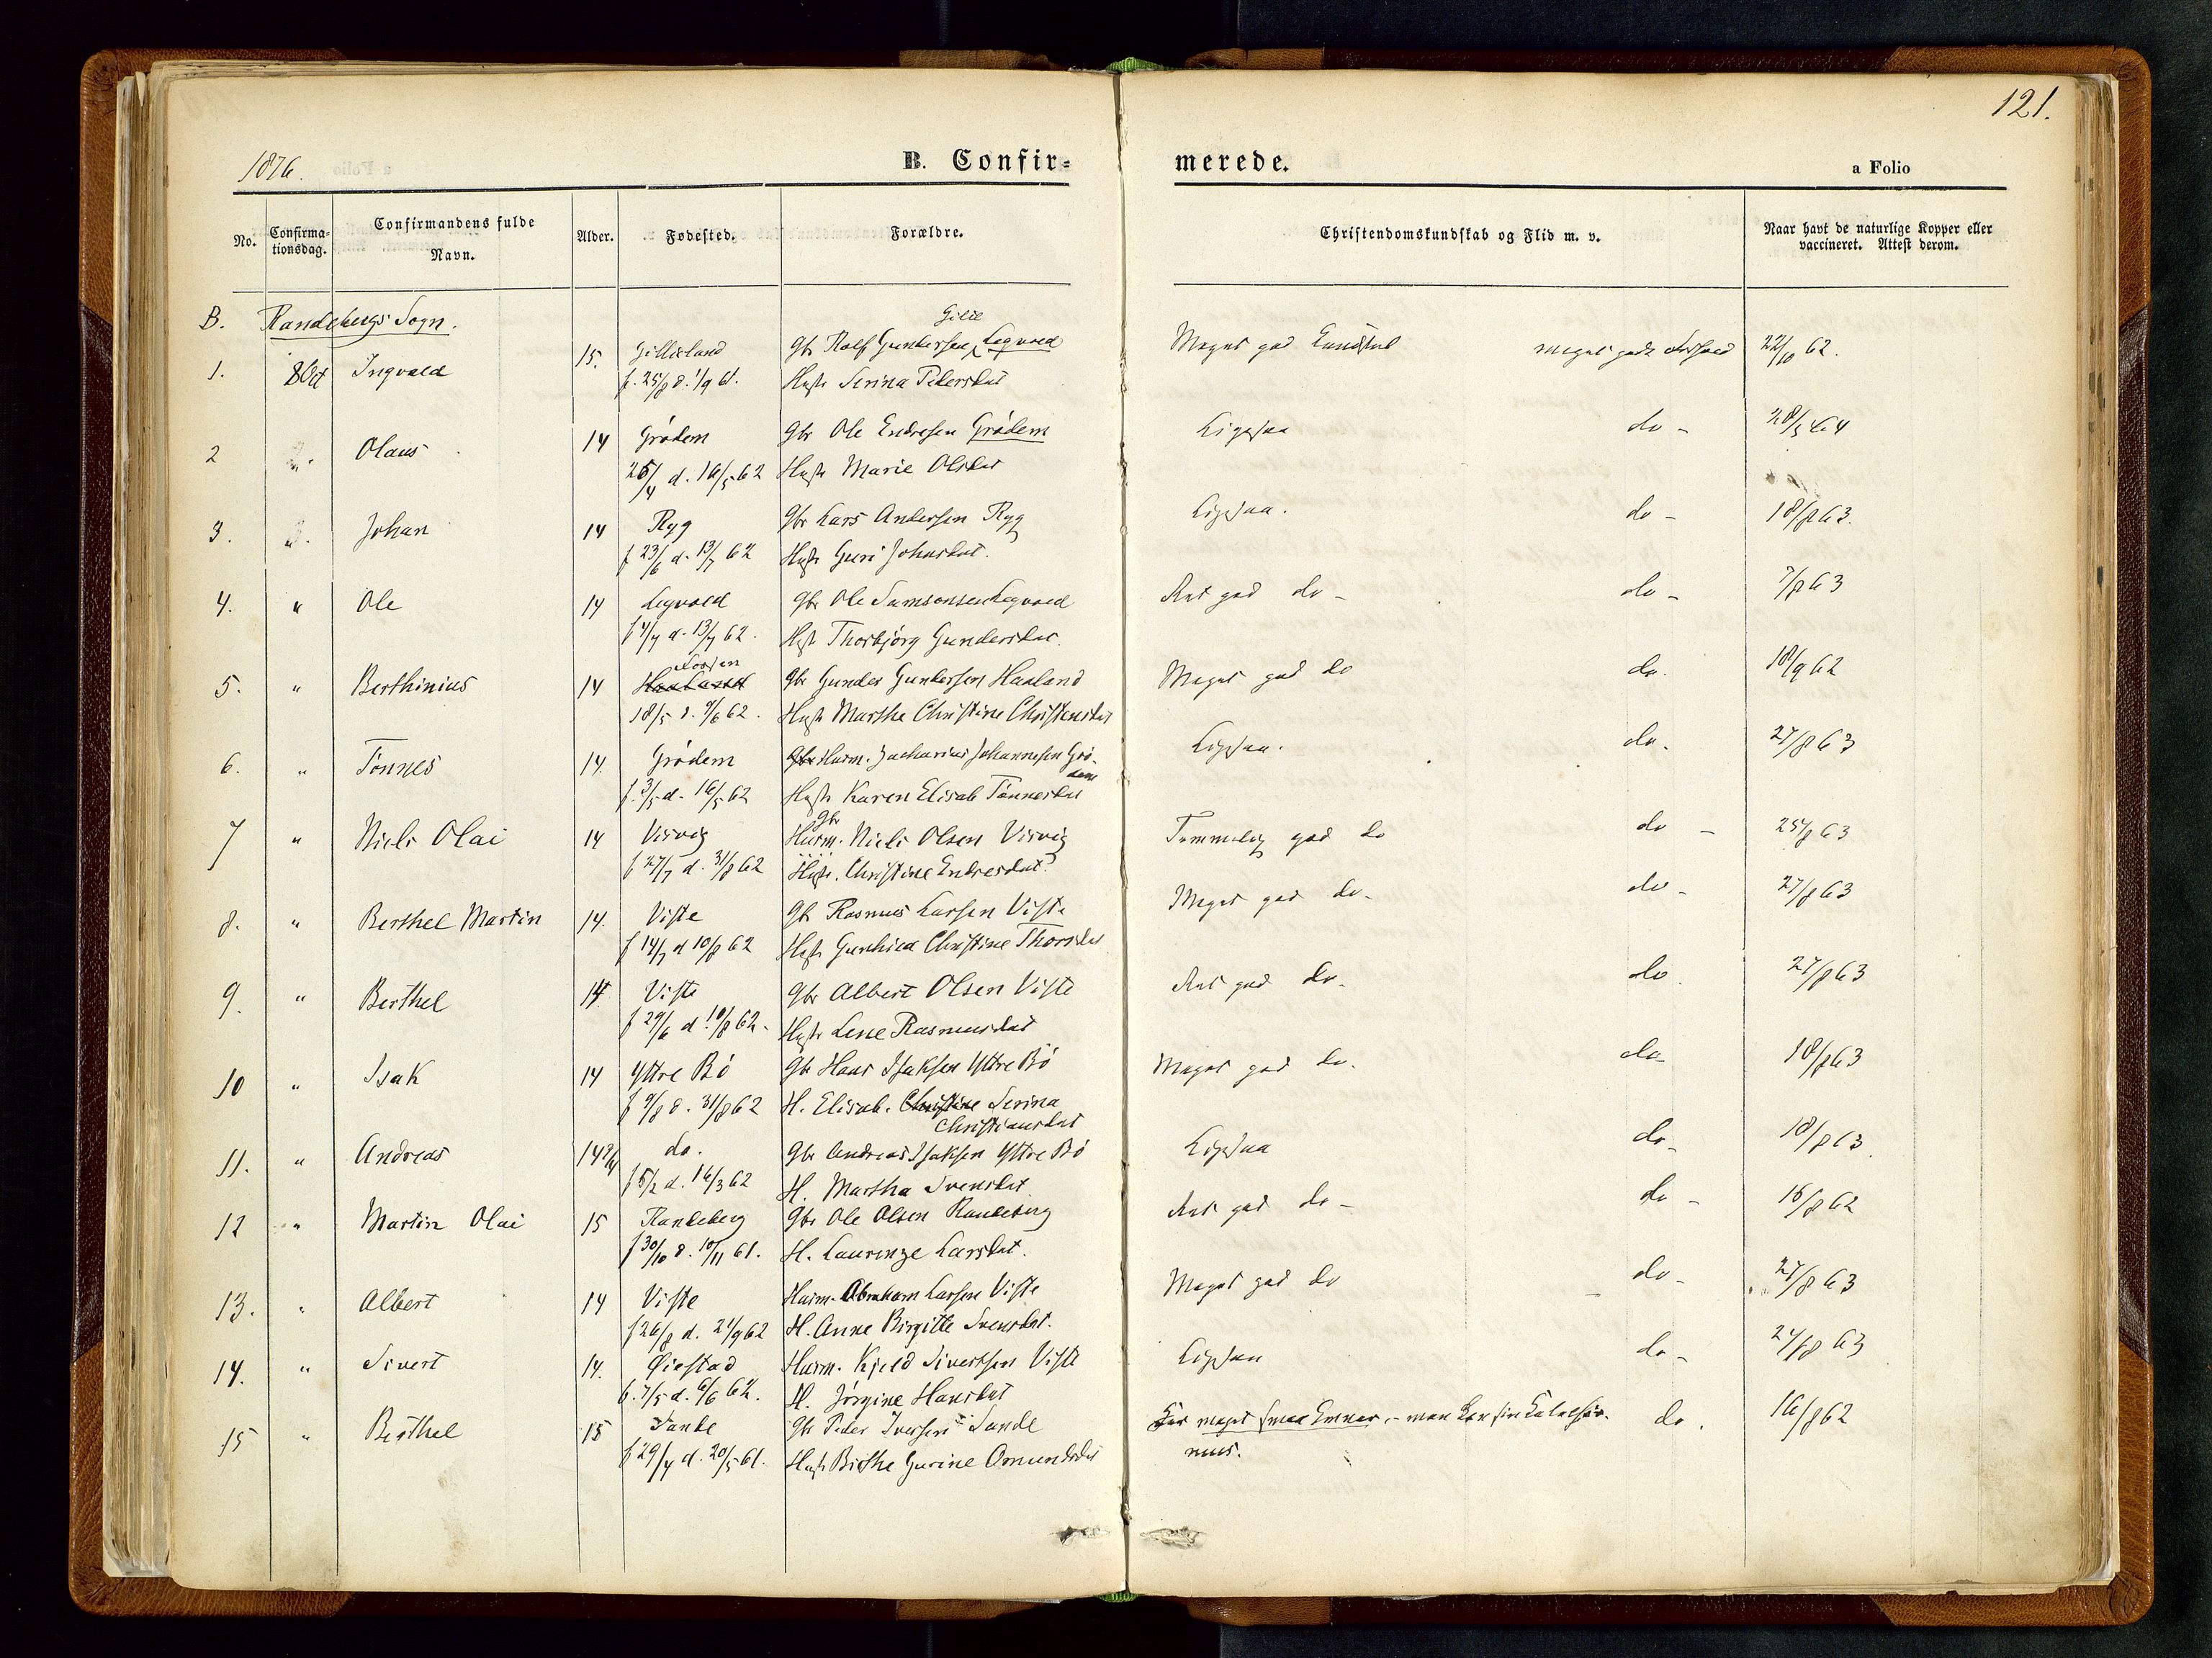 121.
1876.
B. Confir-
merede.
a Folio
No.
Confirma-
tionsdag.
Confirmandens fulde
Navn.
Alder.
Fødested.
Forældre.
Christendomskundskab og Flid m. v.
Naar havt de naturlige Kopper eller
vaccineret. Attest derom.
B. Randebergs Sogn.
1. 8 Oct Ingvald 15. Gbr Rolf Gundersen Legvold Meget god Kundskab meget godt Forhold 22/10 62.
f. 25/8 d. 1/9 61. Hustr Serina Pedersdat
2 Olaus 14 Grødem Gbr Ole Endresen Grødem Ligesaa do -
26/4 d. 16/5 62 Hustr Marie Olsdat
3. Johan 14 Ryg Gbr Lars Andersen Ryg Ligesaa. do - 18/8 63.
f 23/6 d. 13/7 62 Hustr Guri Johnsdat.
4. " Ole 14 Legvold Gbr Ole Samsonsen Legvold do - do - 7/8 63
d. 13/7 62. Hustr Thorbjörg Gundersdat.
5. " Berthinius 14 Gbr Gunder Gundersen Haaland Meget god do do. 18/9 62
18/5 d. 9/6 62. Hustr Marthe Christine Christensdat
6. " Tønnes 14. Grødem Huusm. Zacharias Johannesen Grø-
dem Ligesaa. do. 27/8 63
f. 3/5 d. 16/5 62 Hustr Karen Elisab Tønnesdat
7 " Niels Olai 14 Visvig Gbr
Huusm. Niels Olsen Visvig Temmelig god do do - 25/8 63
f 27/7 d. 31/8 62 Hustr. Christine Endresdat.
8. " Berthel Martin 14. Viste Gbr Rasmus Larsen Viste Meget god do. do - 27/8 63
f 14/7 d 10/8 62 Hustr Gunhild Christine Thorsdat
9. " Berthel 14. Viste Gbr Albert Olsen Viste god do. do. 27/8 63
f 29/6 d. 10/8 62. Hustr Lene Rasmusdat
10 " Isak 14 Yttre Bø Gbr Hans Isaksen Yttre Bø Meget god do. do 18/8 63
f 9/8 d. 31/8 62 H. Elisab. Christine Serina
Christiansdat
11. " Andreas do. Gbr Andreas Isaksen Yttre Bø Ligesaa do. 18/8 63.
d. 16/3 62 H. Martha Svensdat
12 " Martin Olai 15 Randeberg Gbr Ole Olsen Randeberg god do - do - 16/8 62
f 30/10 d. 10/11 61. H. Laurenze Larsdat.
13. " Albert 14 Viste Huusm. Abraham Larsen Viste Meget god do do - 27/8 63
f 26/8 d. 21/9 62 H. Anne Birgitte Svensdat.
14. " Sivert 14. Øiestad Huusm. Kjeld Sivertsen Viste Ligesaa do - 27/8 63
f. 7/5 d. 6/6 62. H. Jørgine Hansdat
15 " Berthel 15 Sande Gbr Peder Iversen Sande meget smaa Evner, - men kan sin Katechis-
mus. do. 16/8 62
f 29/4 d. 20/5 61. Hustr Birthe Gurine Omundsdat